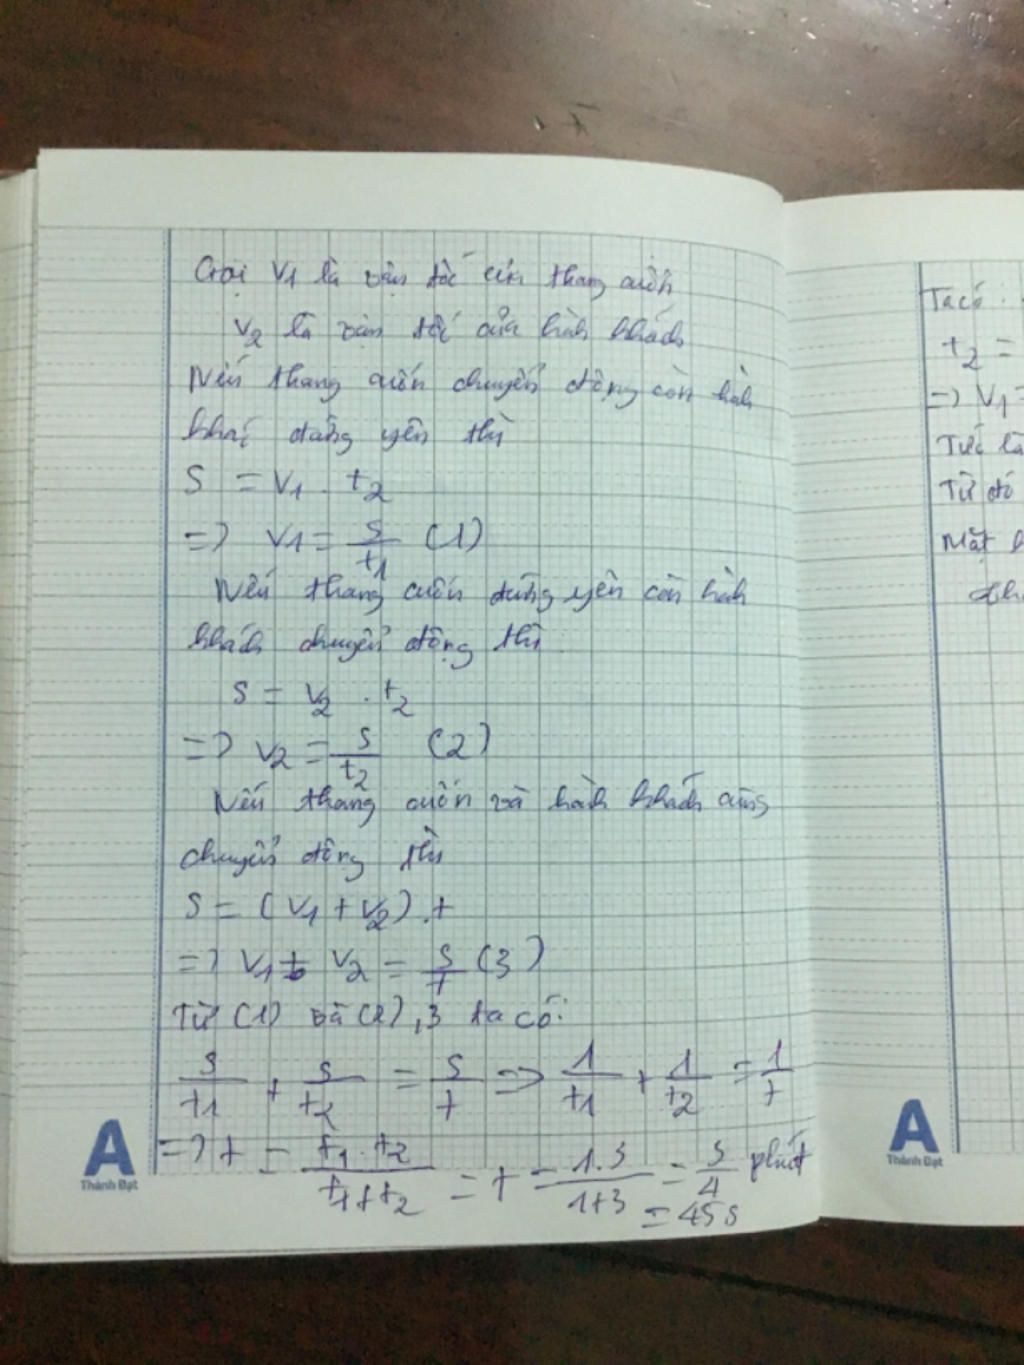 Gọi V1 là vận tốc của thang cuốn
V2 là vận tốc của hành khách
Nếu thang cuốn chuyển động còn hành
khác đứng yên thì
S = V1 . t2
=> V1 = s/t1 (1)
Nếu thang cuốn đứng yên còn hành
khách chuyển động thì
S = V2 . t2
=> V2 = s/t2 (2)
Nếu thang cuốn và hành khách cùng
chuyển động thì
S = (V1 + V2) . t
=> V1 + V2 = s/t (3)
Từ (1) và (2), 3 ta có:
s/t1 + s/t2 = s/t => 1/t1 + 1/t2 = 1/t
=> t = t1 . t2 / t1 + t2 = t = 1.3 / 1+3 = 3/4 phút
= 45s
A
Thành Đạt
Ta có :
t2 =
=> V1 =
Tức là
Từ đó
Mặt
A
Thành Đạt